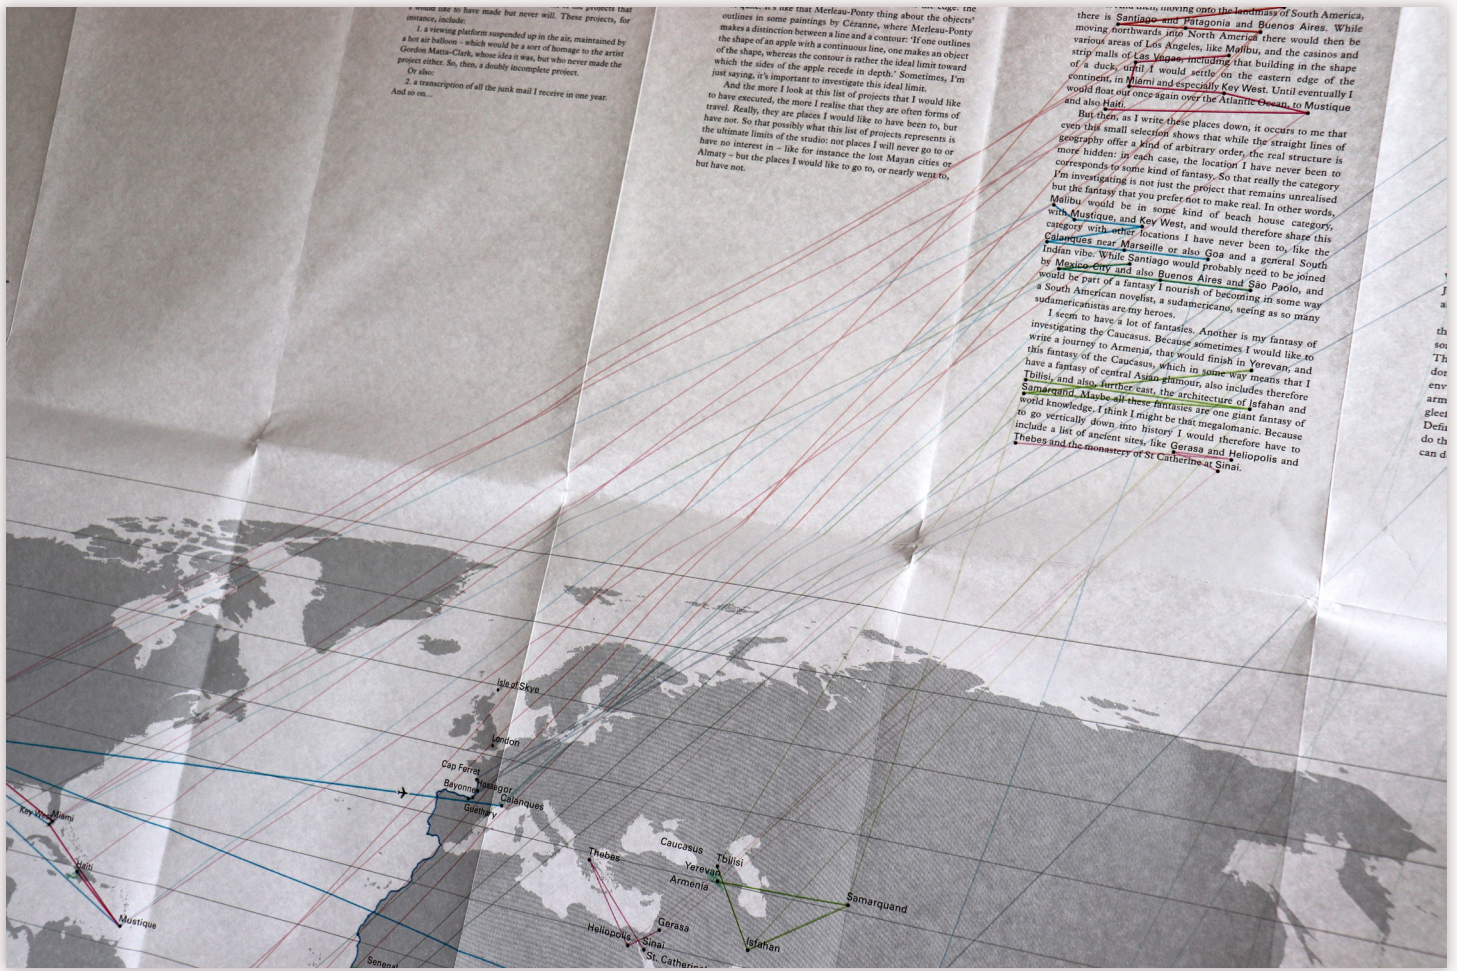 I would like to have made but never will. These projects, for
instance, include:
1. a viewing platform suspended up in the air, maintained by
a hot air balloon – which would be a sort of homage to the artist
Gordon Matta-Clark, whose idea it was, but who never made the
project either. So, then, a doubly incomplete project.
Or also:
2. a transcription of all the junk mail I receive in one year.
And so on...
like that Merleau-Ponty thing about the objects'
outlines in some paintings by Cézanne, where Merleau-Ponty
makes a distinction between a line and a contour: 'If one outlines
the shape of an apple with a continuous line, one makes an object
of the shape, whereas the contour is rather the ideal limit toward
which the sides of the apple recede in depth.' Sometimes, I'm
just saying, it's important to investigate this ideal limit.
And the more I look at this list of projects that I would like
to have executed, the more I realise that they are often forms of
travel. Really, they are places I would like to have been to, but
have not. So that possibly what this list of projects represents is
the ultimate limits of the studio: not places I will never go to or
have no interest in – like for instance the lost Mayan cities or
Almaty – but the places I would like to go to, or nearly went to,
but have not.
then, moving onto the landmass of South America,
there is Santiago and Patagonia and Buenos Aires. While
moving northwards into North America there would then be
various areas of Los Angeles, like Malibu, and the casinos and
strip malls of Las Vegas, including that building in the shape
of a duck, until I would settle on the eastern edge of the
continent, in Miami and especially Key West. Until eventually I
would float out once again over the Atlantic Ocean, to Mustique
and also Haiti.
But then, as I write these places down, it occurs to me that
even this small selection shows that while the straight lines of
geography offer a kind of arbitrary order, the real structure is
more hidden: in each case, the location I have never been to
corresponds to some kind of fantasy. So that really the category
I'm investigating is not just the project that remains unrealised
but the fantasy that you prefer not to make real. In other words,
Malibu would be in some kind of beach house category,
with Mustique, and Key West, and would therefore share this
category with other locations I have never been to, like the
Calanques near Marseille or also Goa and a general South
Indian vibe. While Santiago would probably need to be joined
by Mexico City and also Buenos Aires and São Paolo, and
would be part of a fantasy I nourish of becoming in some way
a South American novelist, a sudamericano, seeing as so many
sudamericanistas are my heroes.
I seem to have a lot of fantasies. Another is my fantasy of
investigating the Caucasus. Because sometimes I would like to
write a journey to Armenia, that would finish in Yerevan, and
this fantasy of the Caucasus, which in some way means that I
have a fantasy of central Asian glamour, also includes therefore
Tbilisi, and also, further east, the architecture of Isfahan and
Samarqand. Maybe all these fantasies are one giant fantasy of
world knowledge. I think I might be that megalomanic. Because
to go vertically down into history I would therefore have to
include a list of ancient sites, like Gerasa and Heliopolis and
Thebes and the monastery of St Catherine at Sinai.
th
sou
Th
dor
env
arm
gleef
Defin
do th
can d
Isle of Skye
London
Cap Ferret
Bayonne
Hossegor
Calanques
Guéthary
Key West
Miami
Haiti
Mustique
Caucasus
Tbilisi
Thebes
Yerevan
Armenia
Samarquand
Gerasa
Heliopolis
Sinai
Isfahan
St. Catherine
Senegal